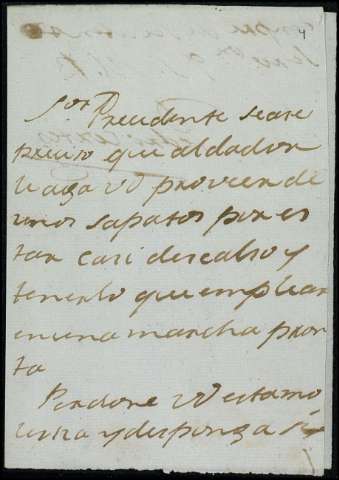 4
Sor Precidente seare
preciso que al dador
le aga Vd proveer de
unos sapatos por es
tar casi descalso y
tenerlo que emplear
en una marcha pron
ta
Perdone Vd esta mo
lestia y disponga